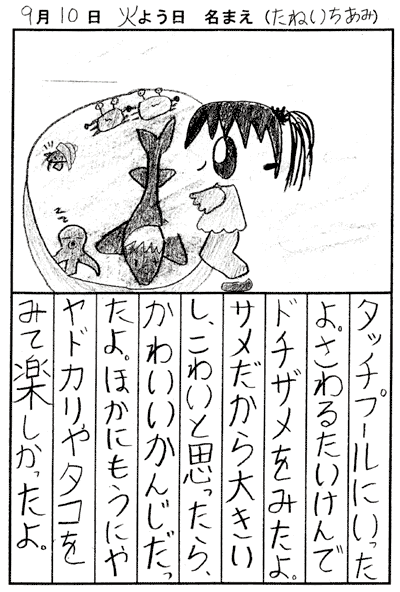 9月10日 火よう日 名まえ(たねいちあみ)
タッチプールにいった
よ。さわるたいけんで
ドチザメをみたよ。
サメだから大きい
し、こわいと思ったら、
かわいいかんじだっ
たよ。ほかにもうにや
ヤドカリやタコを
みて楽しかったよ。